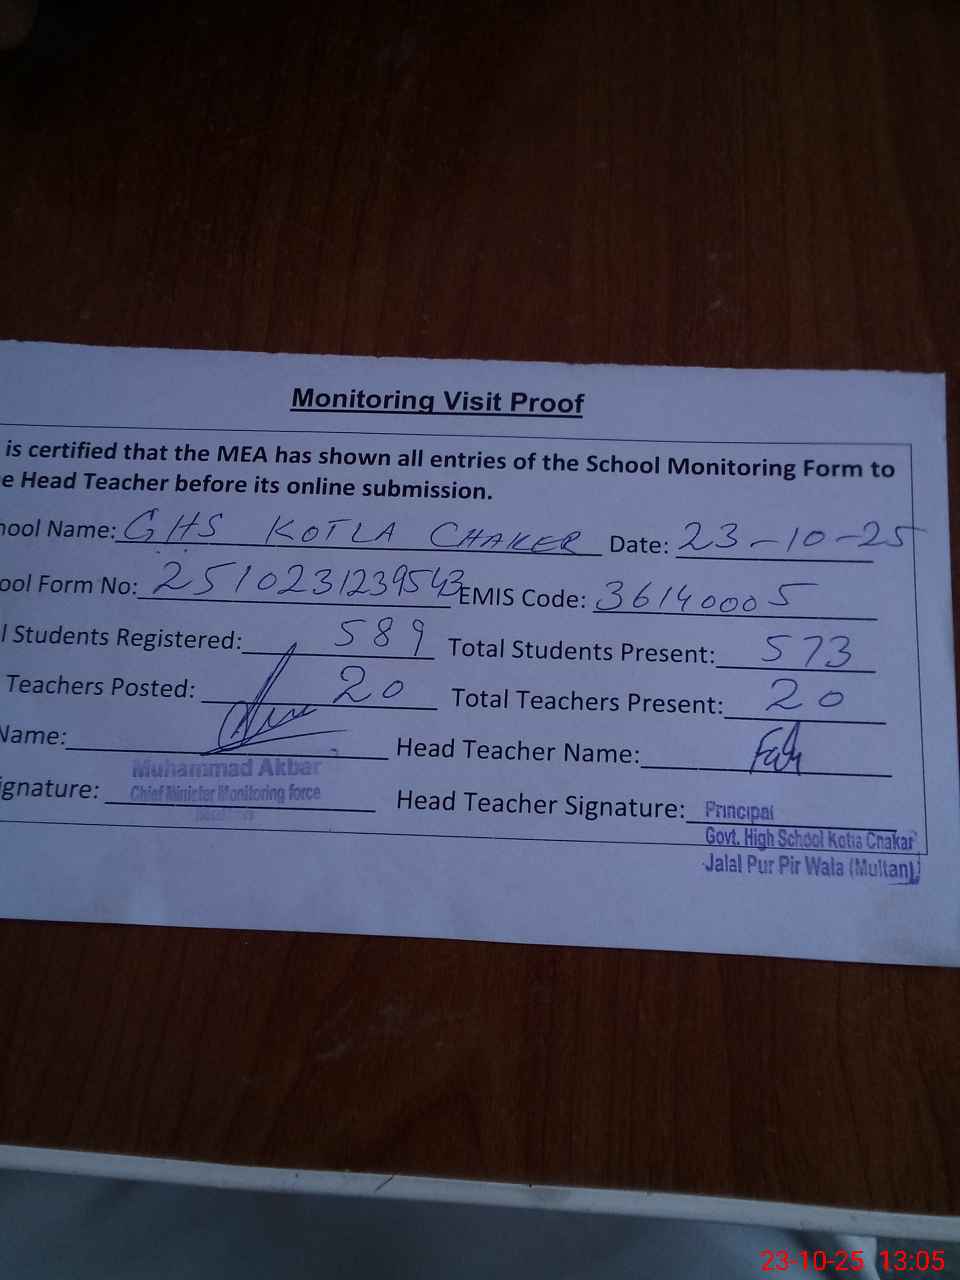 Monitoring Visit Proof
is certified that the MEA has shown all entries of the School Monitoring Form to
e Head Teacher before its online submission.
hool Name: GHS KOTLA CHAKER Date: 23-10-25
ool Form No: 2510231239543 EMIS Code: 36140005
l Students Registered: 589 Total Students Present: 573
Teachers Posted: 20 Total Teachers Present: 20
Name: Head Teacher Name:
Muhammad Akbar
ignature: Chief Minister Monitoring force Head Teacher Signature: Principal
Govt. High School Kotla Chakar
Jalal Pur Pir Wala (Multan)
23-10-25 13:05